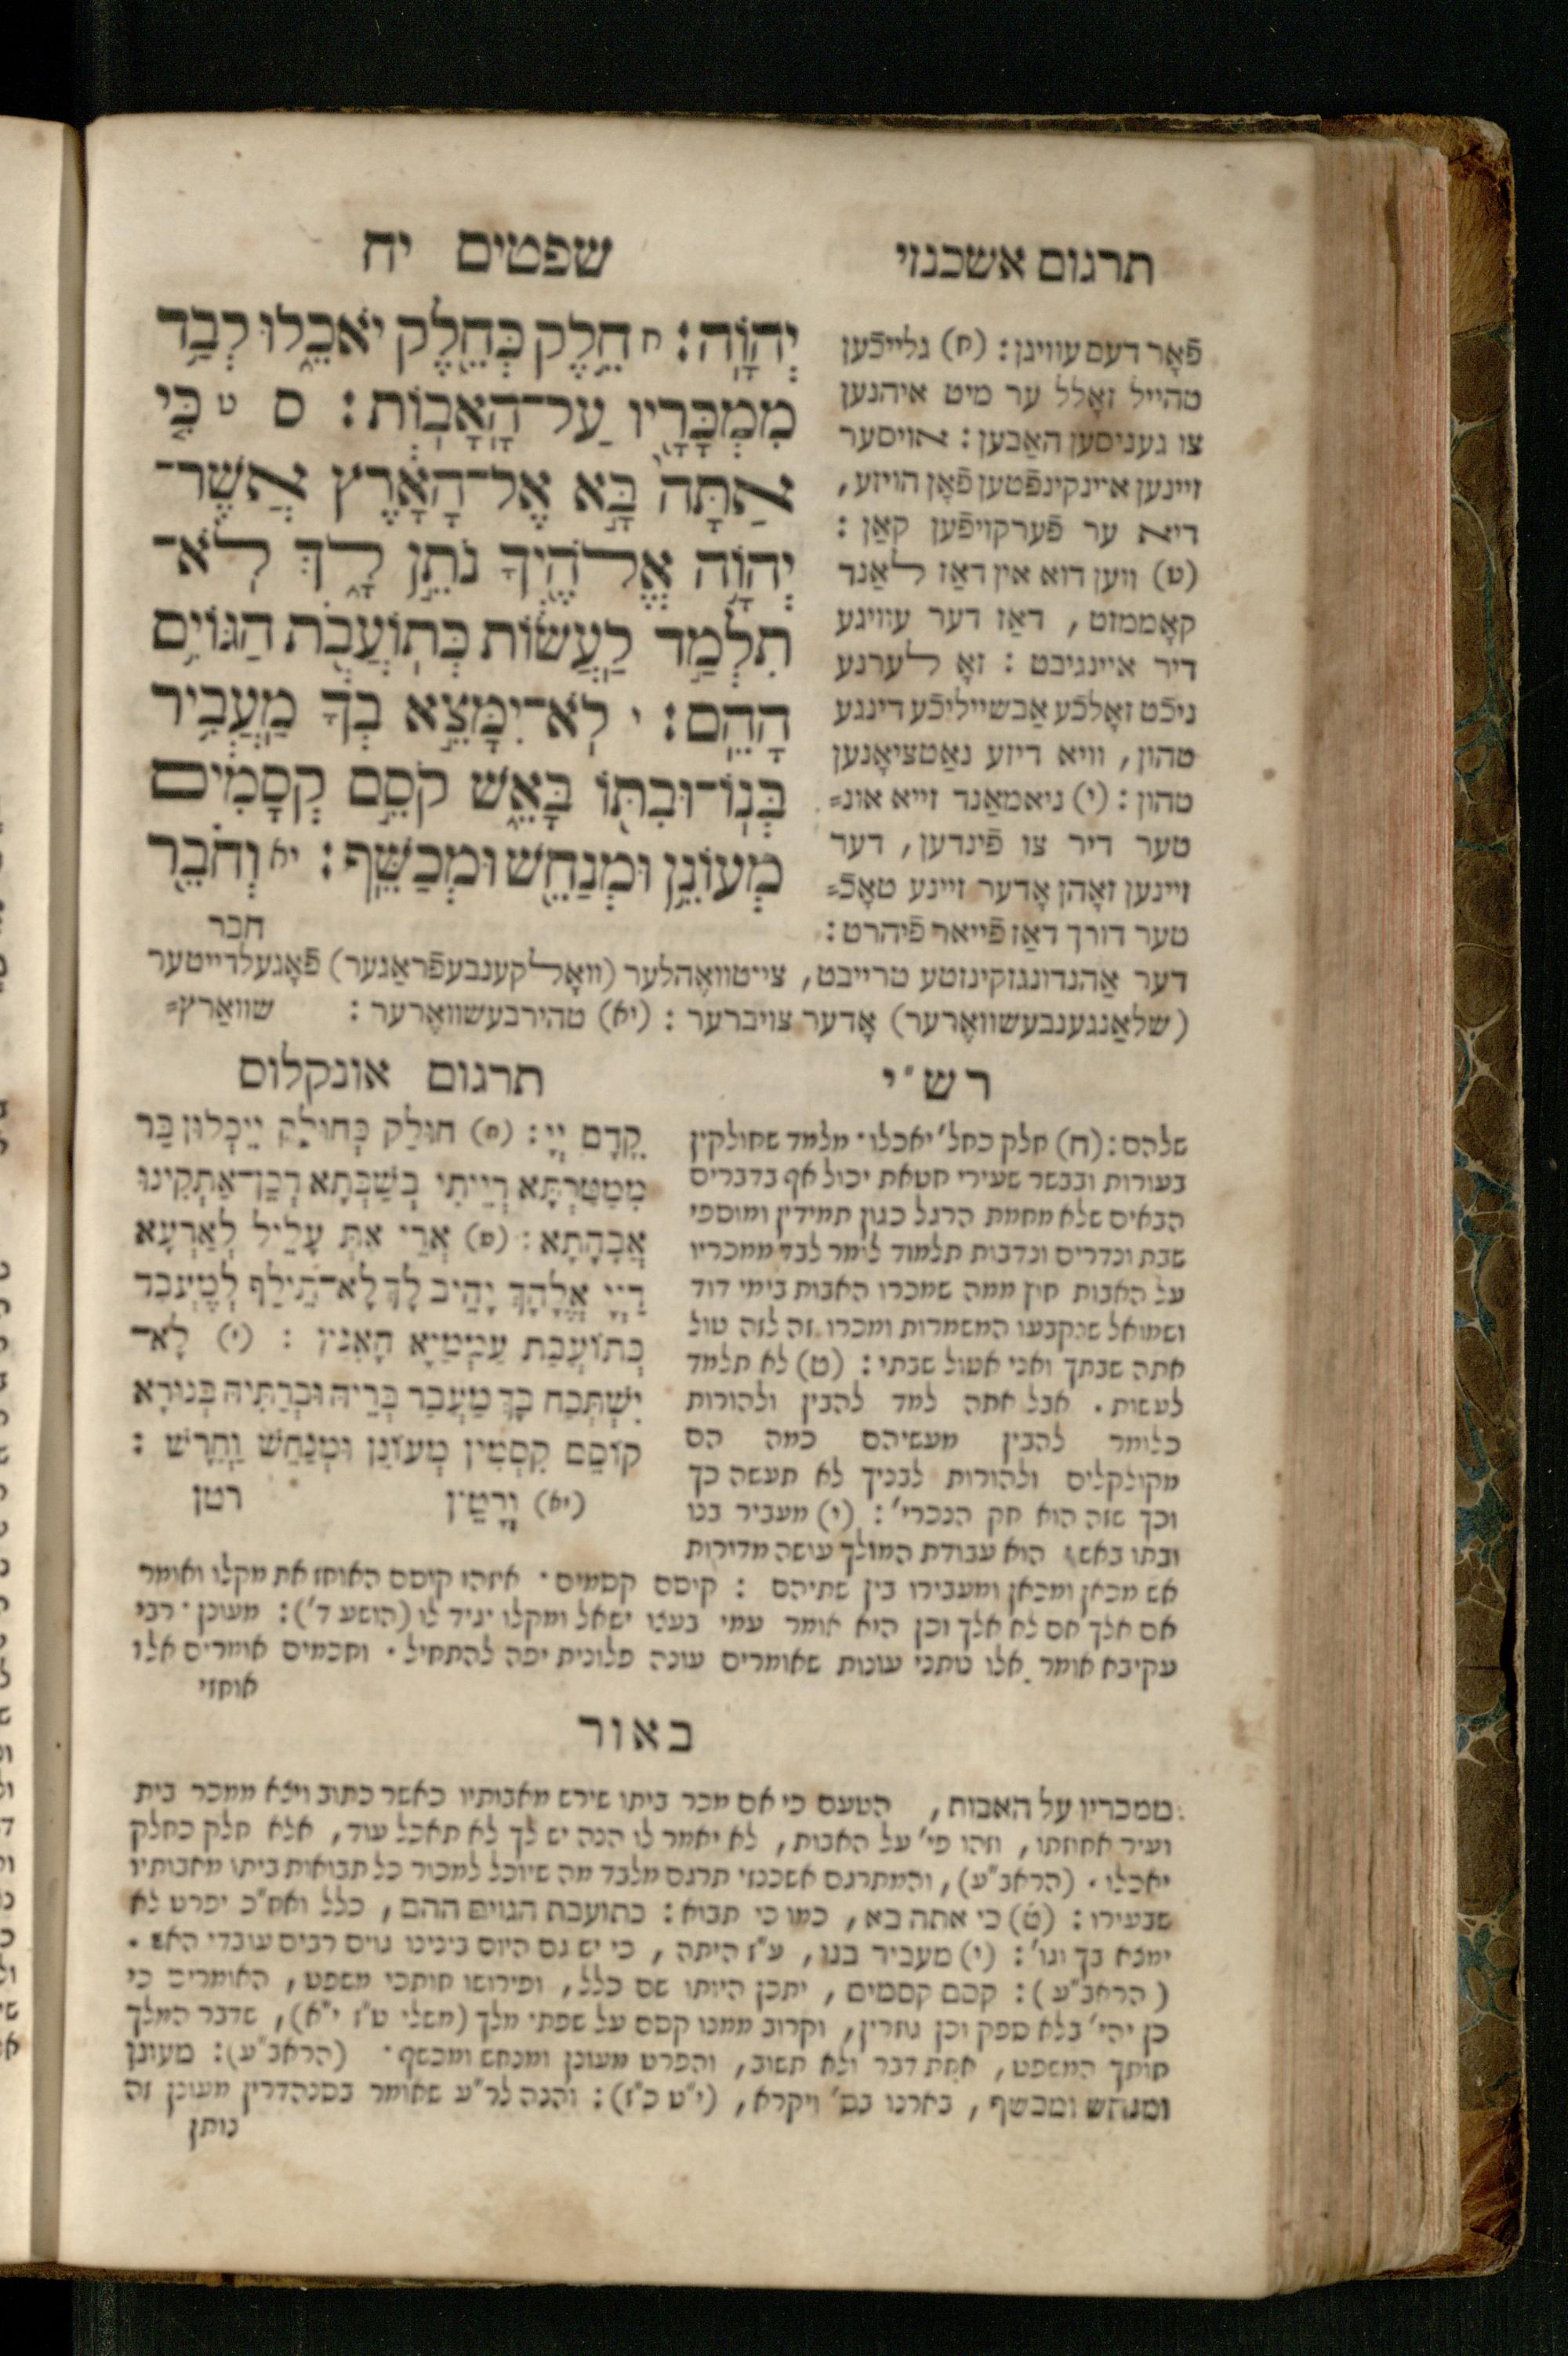 תרגום אשכנזי
שפטים יח
יְהוָֽה׃ ח חֵ֥לֶק כְּחֵ֖לֶק יֹאכֵ֑לוּ לְבַ֥ד
מִמְכָּרָ֖יו עַל־הָאָבֽוֹת׃ ס ט כִּ֤י
אַתָּה֙ בָּ֣א אֶל־הָאָ֔רֶץ אֲשֶׁר־
יְהוָ֥ה אֱלֹהֶ֖יךָ נֹתֵ֣ן לָ֑ךְ לֹֽא־
תִלְמַ֣ד לַעֲשׂ֔וֹת כְּתוֹעֲבֹ֖ת הַגּוֹיִ֥ם
הָהֵֽם׃ י לֹֽא־יִמָּצֵ֣א בְךָ֔ מַעֲבִ֥יר
בְּנֽוֹ־וּבִתּ֖וֹ בָּאֵ֑שׁ קֹסֵ֣ם קְסָמִ֔ים
מְעוֹנֵ֥ן וּמְנַחֵ֖שׁ וּמְכַשֵּֽׁף׃ יא וְחֹבֵ֖ר
חבר
פֿאָר דעם עוויגן: (ח) גלייכֿען
טהייל זאָלל ער מיט איהנען
צו געניסען האַבען: אויסער
זיינען איינקינפֿטען פֿאָן הויזע,
דיא ער פֿערקויפֿען קאַן:
(ט) ווען דוא אין דאַז לאַנד
קאָממזט, דאַז דער עוויגע
דיר איינגיבט: זאָ לערנע
ניכֿט זאָלכֿע אַבשייליכֿע דינגע
טהון, וויא דיזע נאַטציאָנען
טהון: (י) ניאמאַנד זייא אונ=
טער דיר צו פֿינדען, דער
זיינען זאָהן אָדער זיינע טאָכֿ=
טער דורך דאַז פֿייאר פֿיהרט:
דער אַהנדונגזקינזטע טרייבט, צייטוואֶהלער (וואָלקענבעפֿראַגער) פֿאָגעלדייטער
(שלאַנגענבעשוואֶרער) אָדער צויברער: (יא) טהירבעשוואֶרער: שוואַרץ=
רש"י
שלהם: (ח) חלק כחל' יאכלו· מלמד שחולקין
בעורות ובבשר שעירי חטאת יכול אף בדברים
הבאים שלא מחמת הרגל כגון תמידין ומוספי
שבת ונדרים ונדבות תלמוד לומר לבד ממכריו
על האבות חוץ ממה שמכרו האבות בימי דוד
ושמואל שנקבעו המשמרות ומכרו זה לזה טול
אתה שבתך ואני אטול שבתי: (ט) לא תלמד
לעשות. אבל אתה למד להבין ולהורות
כלומר להבין מעשיהם כמה הם
מקולקלים ולהורות לבניך לא תעשה כך
וכך שזה הוא חק הנכרי': (י) מעביר בנו
ובתו באש, הוא עבודת המולך עושה מדורות
אש מכאן ומכאן ומעבירו בין שתיהם: קוסם קסמים· איזהו קוסם האוחז את מקלו ואומר
אם אלך אם לא אלך וכן הוא אומר עמי בעצו ישאל ומקלו יגיד לו (הושע ד'): מעונן· רבי
עקיבא אומר אלו נותני עונות שאומרים עונה פלונית יפה להתחיל. וחכמים אומרים אלו
אוחזי
תרגום אונקלוס
קֳדָם יְיָ: (ח) חוּלַק כְּחוּלַק יֵיכְלוּן בַּר
מִמַּטַּרְתָּא דְּיֵיתִי בְשַׁבְּתָא דְּכֵן־אַתְקִינוּ
אֲבָהָתָא: (ט) אֲרֵי אַתְּ עָלֵיל לְאַרְעָא
דַּיְיָ אֱלָהָךְ יָהֵיב לָךְ לָא־תֵילַף לְמֶעְבַּד
כְּתוֹעֲבַת עַמְמַיָּא הָאִנּוּן: (י) לָא־
יִשְׁתְּכַח בָּךְ מַעְבַר בְּרֵיהּ וּבְרַתֵּיהּ בְּנוּרָא
קוֹסֵם קִסְמִין מְעוֹנֵן וּמְנַחֵשׁ וְחָרָשׁ:
(יא) וְרָטֵין רטן
באור
ממכריו על האבות, הטעם כי אם מכר ביתו שירש מאבותיו כאשר כתוב ויצא ממכר בית
ועיר אחוזתו, וזהו פי' על האבות, לא יאמר לו הנה יש לך לא תאכל עוד, אלא חלק כחלק
יאכלו. (הראב"ע), והמתרגם אשכנזי תרגם מלבד מה שיוכל למכור כל תבואות ביתו מאבותיו
שבעירו: (ט) כי אתה בא, כמו כי תבוא: כתועבת הגוים ההם, כלל ואח"כ יפרט לא
ימצא בך וגו': (י) מעביר בנו, ע"ז היתה, כי יש גם היום בינינו גוים רבים עובדי האש.
(הראב"ע): קסם קסמים, יתכן היותו שם כלל, ופירושו חותכי משפט, האומרים כי
כן יהי' בלא ספק וכן גוזרין, וקרוב ממנו קסם על שפתי מלך (משלי ט"ז י"א), שדבר המלך
חותך המשפט, אמת דבר ולא תשוב, והפרט מעונן ומנחש ומכשף· (הראב"ע): מעונן
ומנחש ומכשף, בארנו בס' ויקרא, (י"ט כ"ז): והנה לר"ע שאומר בסנהדרין מעונן זה
נותן